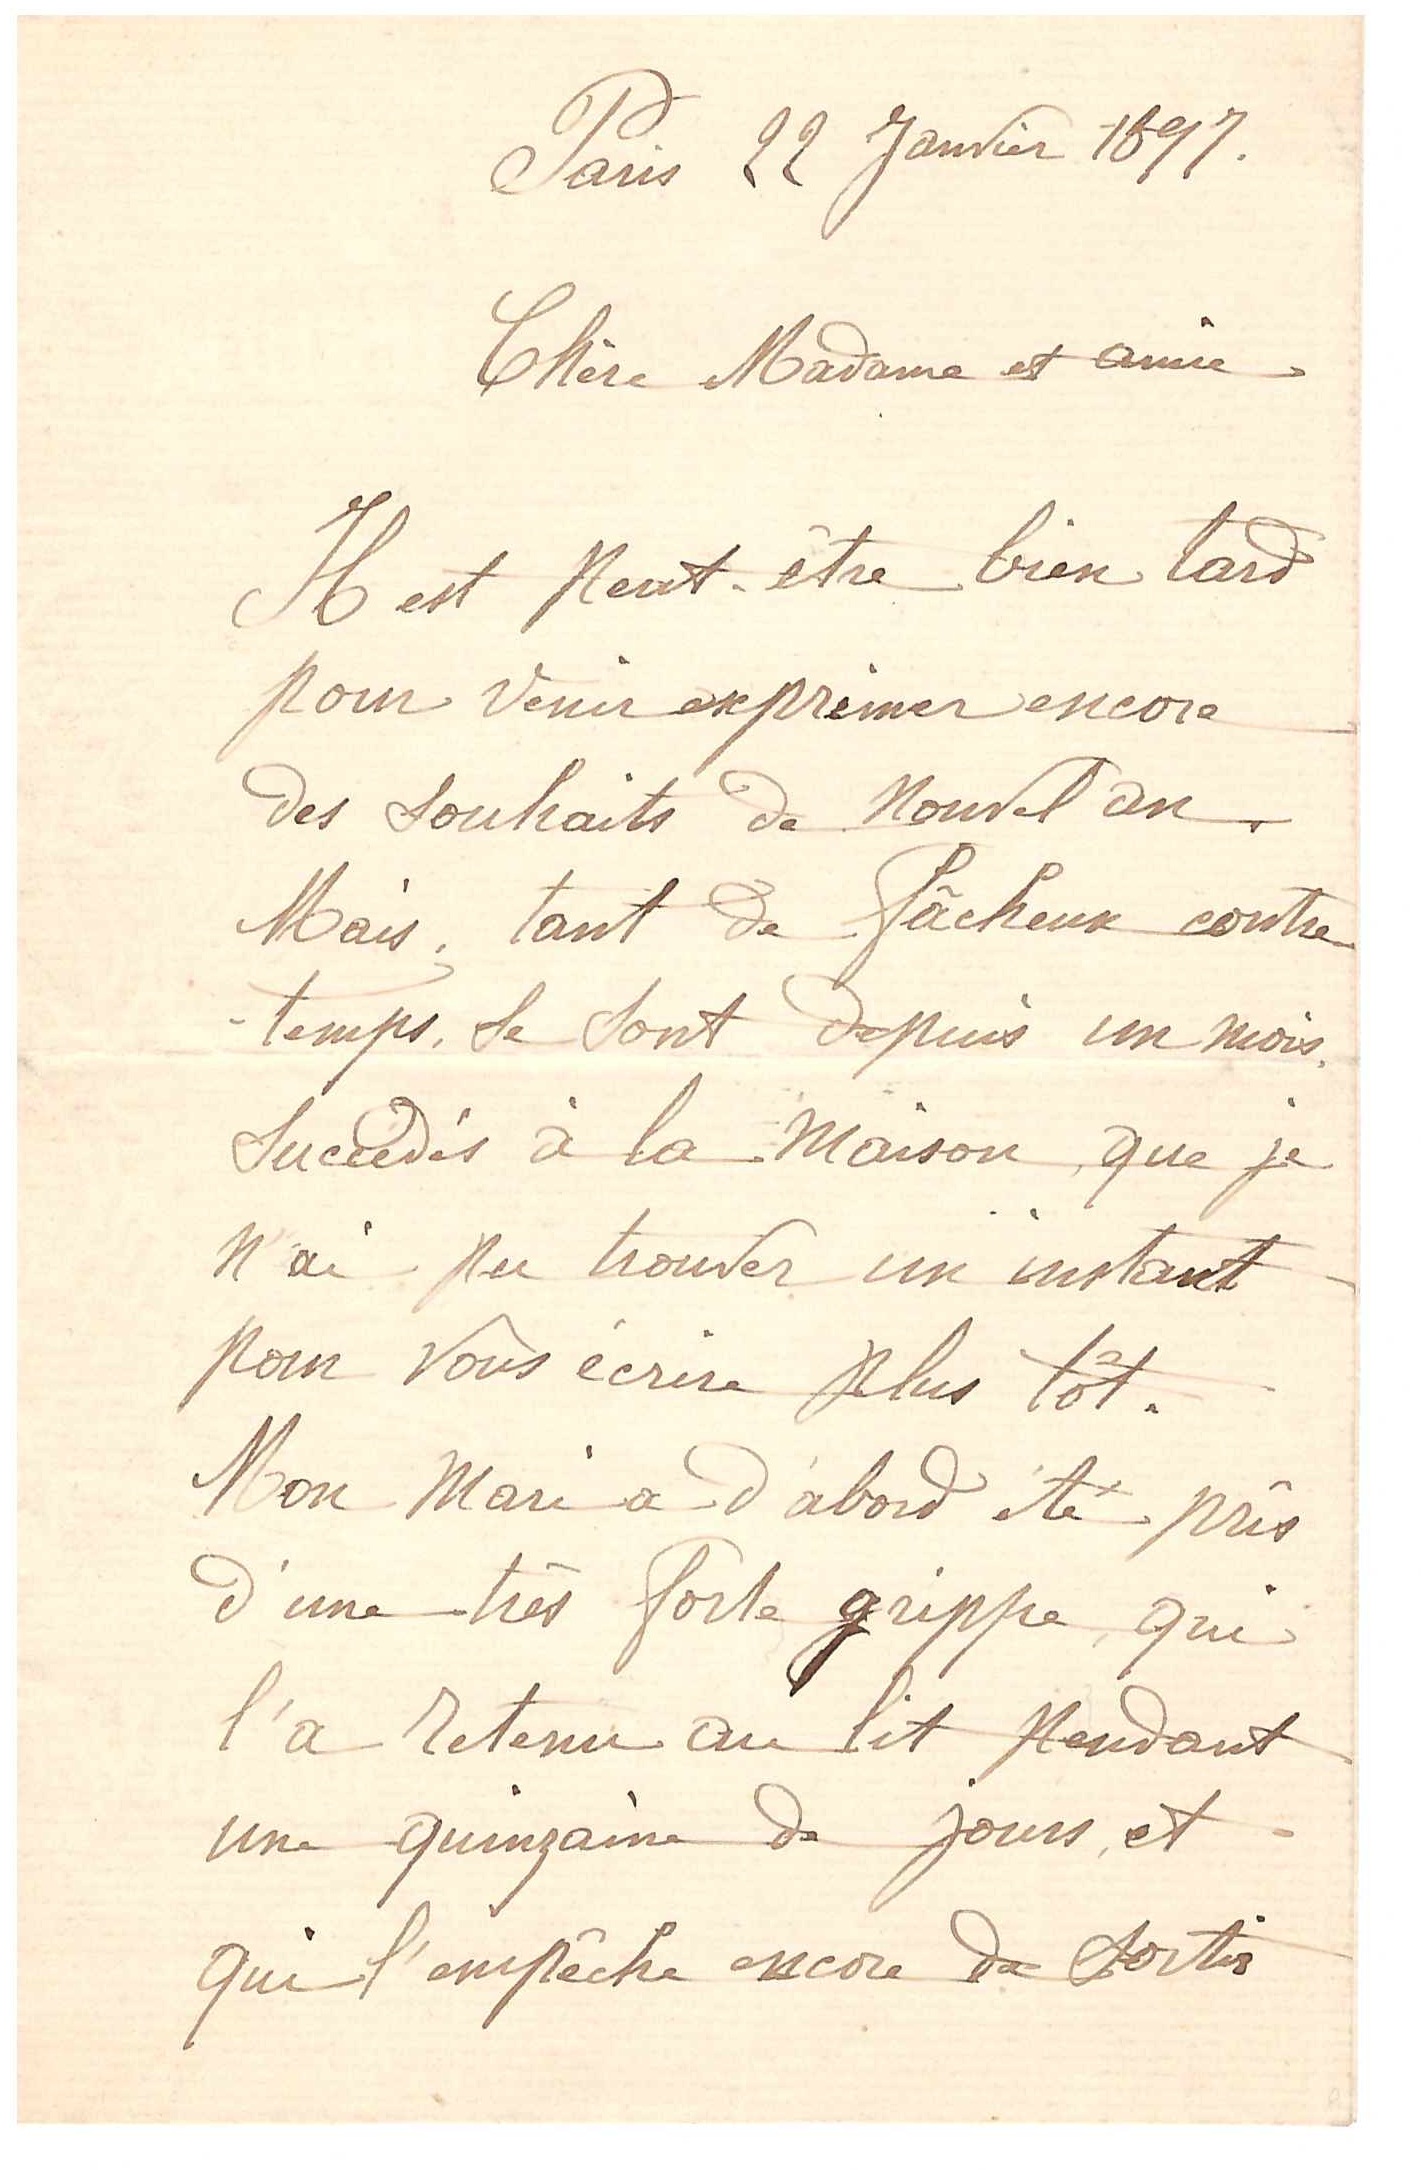 Paris 22 Janvier 1897.
Chère Madame et amie
Il est peut-être bien tard
pour venir exprimer encore
des souhaits de nouvel an.
Mais, tant de fâcheux contre
-temps, se sont depuis un mois,
succédés à la maison, que je
n'ai pu trouver un instant
pour vous écrire plus tôt.
Mon mari a d'abord été pris
d'une très forte grippe, qui
l'a retenu au lit pendant
une quinzaine de jours, et
qui l'empêche encore de sortir